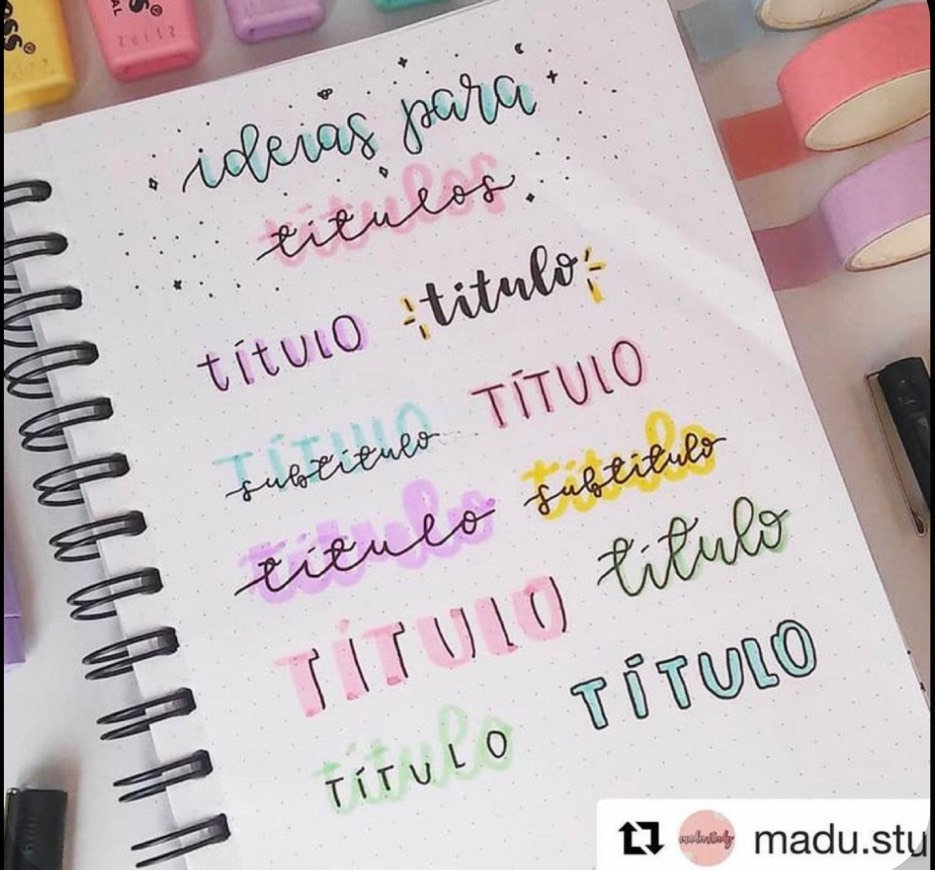 ideias para
títulos
títULO título
TÍTULO TÍTULO
subtítulo
título
subtítulo
título título
TÍTULO
TÍTULO
título
TÍTULO
madu.stu